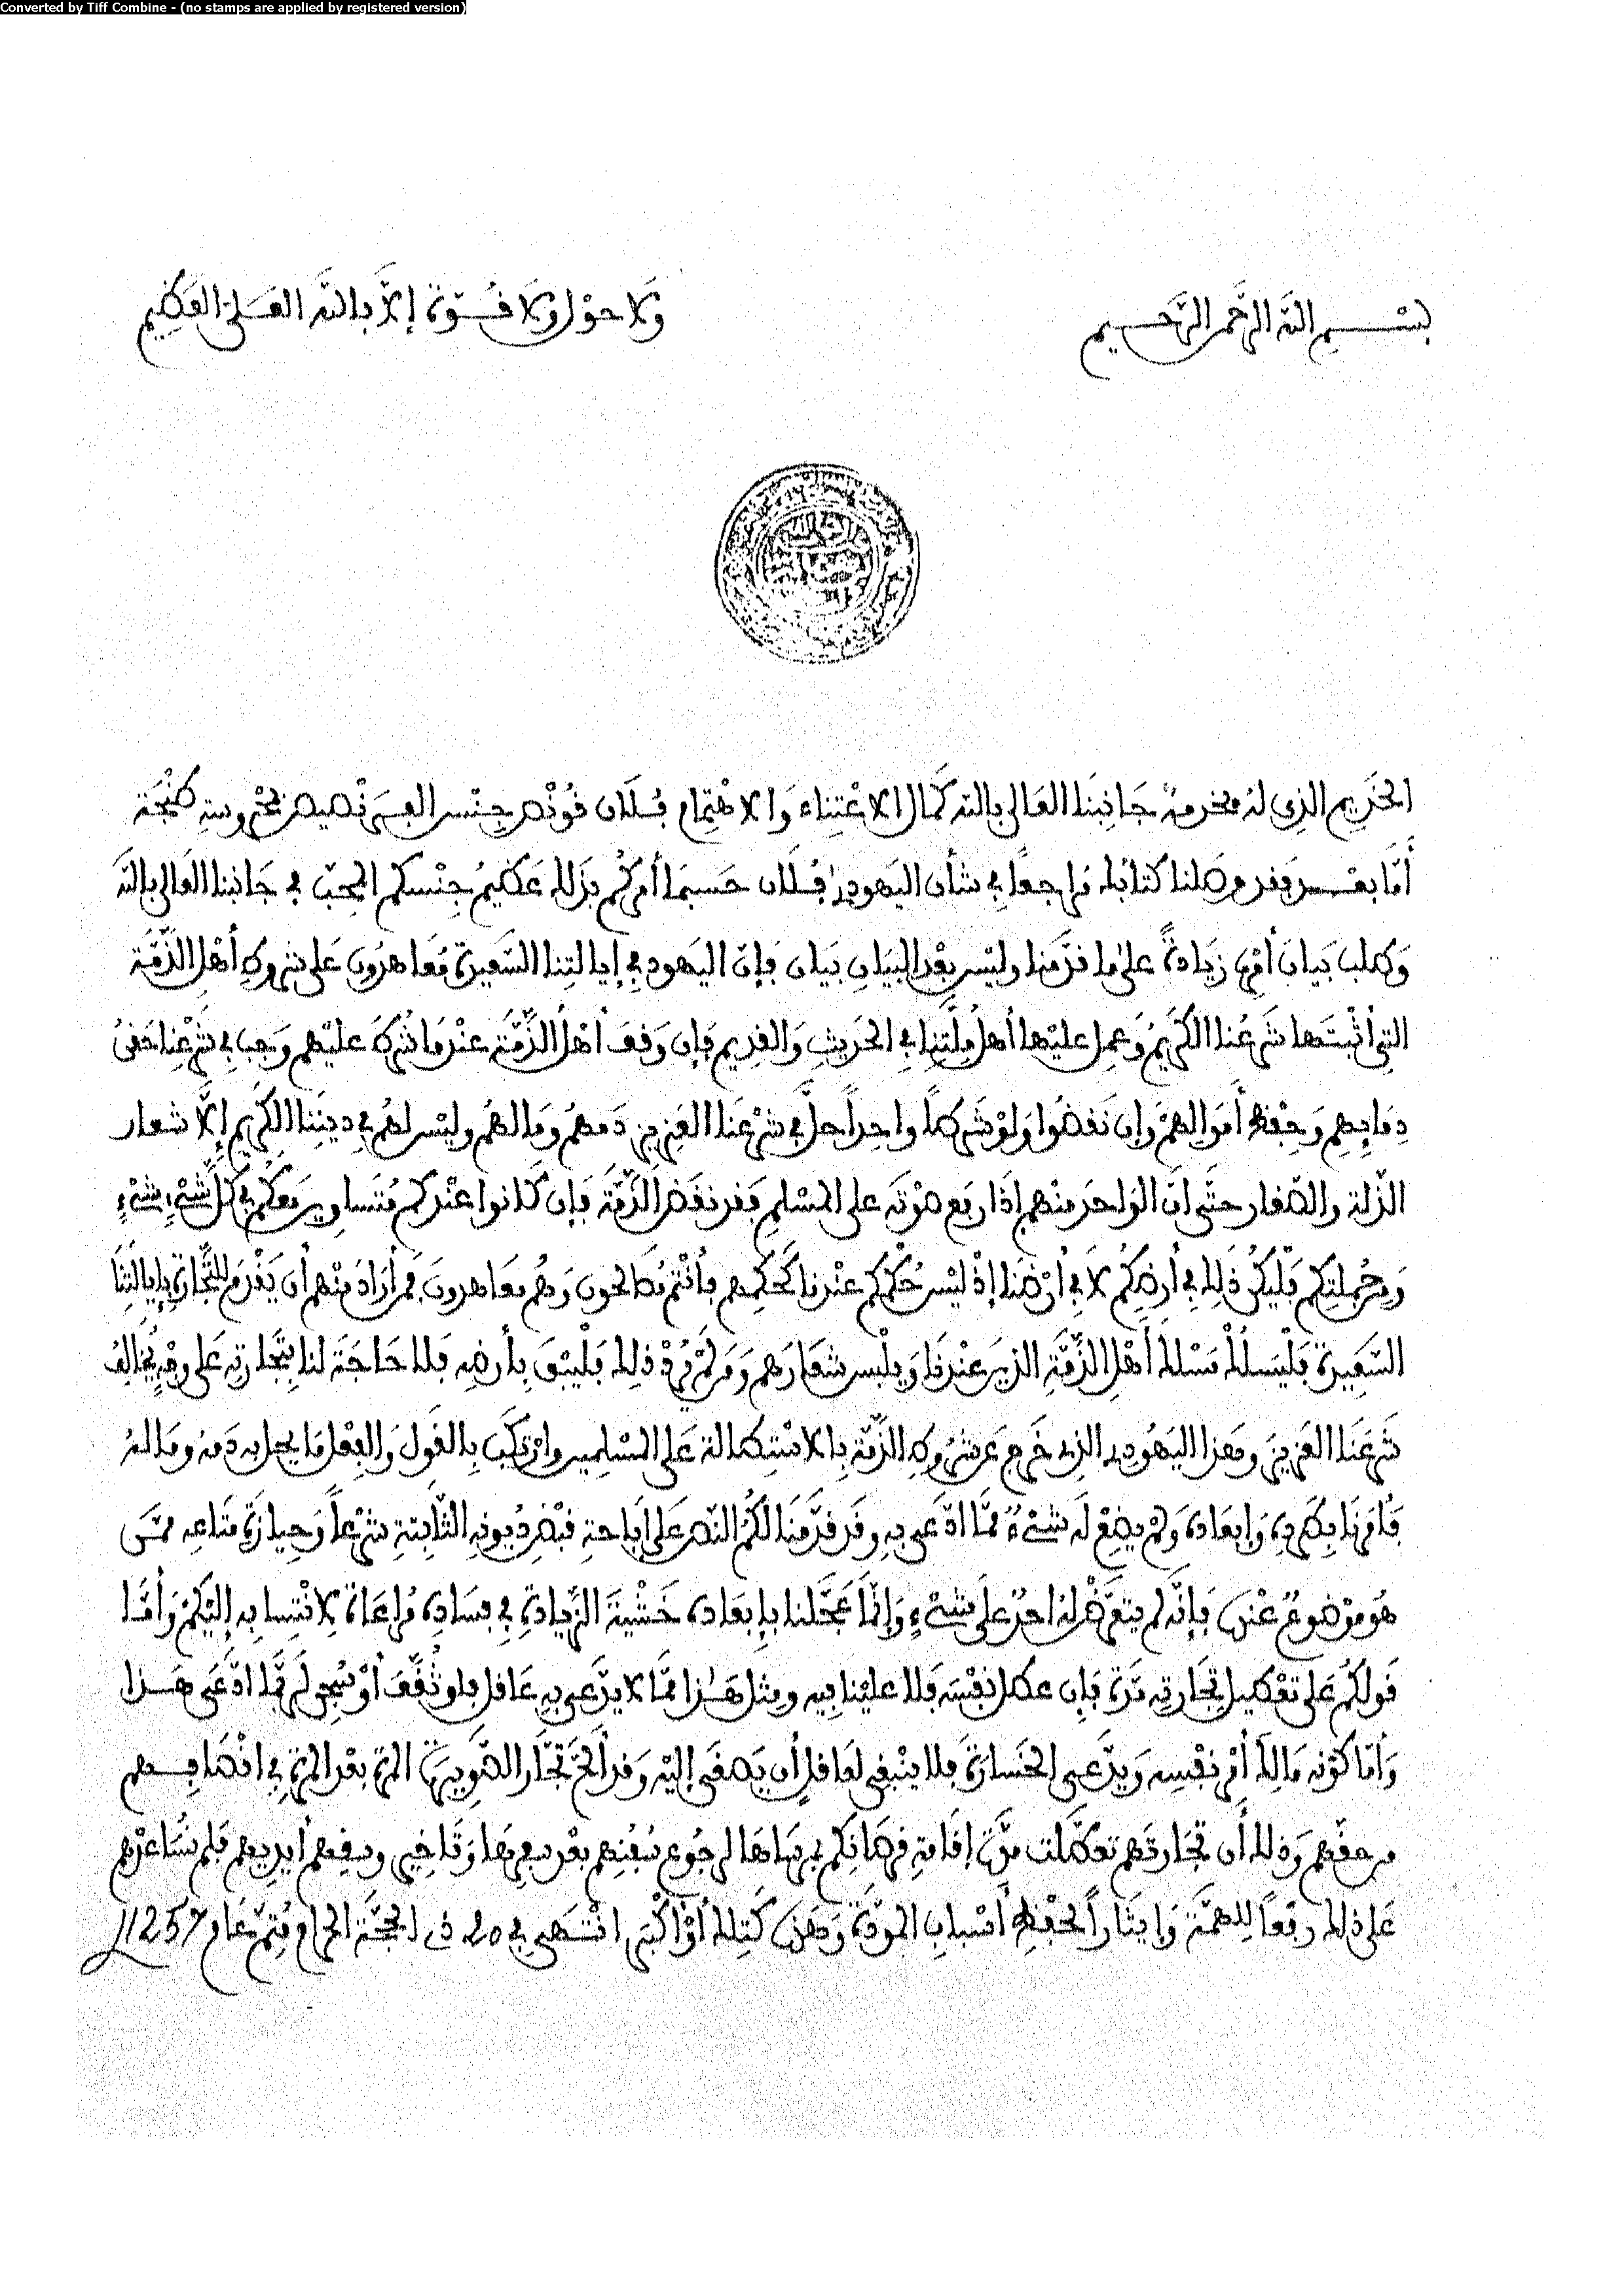 Converted by Tiff Combine - (no stamps are applied by registered version)
بسم الله الرحمن الرحيم
ولا حول ولا قوة إلا بالله العلي العظيم
الخديم الذي له مخدمة جانبنا العالي بالله كمال الاعتناء والاهتمام فلان قونص جنس الفرنصيص بمحروسة طنجة
أما بعد فقد وصلنا كتابك مراجعا في شأن اليهودي فلان حسبما أمركم بذلك عظيم جنسكم المحب في جانبنا العالي بالله
وطلب بيان أمره زيادة على ما قدمنا وليس بعد البيان بيان فإن اليهود في إيالتنا السعيدة معاهدون على شروط أهل الذمة
التي أثبتها شرعنا الكريم وعمل عليها أهل ملتنا في الحديث والقديم فإن وقف أهل الذمة عند ما شرط عليهم وجب في شرعنا حقن
دمايهم وحفظ أموالهم وإن نقضوا ولو شرطا واحدا حل في شرعنا العزيز دمهم ومالهم وليس لهم في ديننا الكريم إلا شعار
الذلة والصغار حتى أن الواحد منهم إذا رفع صوته على المسلم فقد نقض الذمة فإن كانوا عندكم متساويين معكم في كل شيء شيء
ومن جملتكم فليكن ذلك في أرضكم لا في أرضنا إذ ليس حكمكم عندنا كحكمهم فأنتم مصالحون وهم معاهدون فمن أراد منهم أن يقدم للتجارة بإيالتنا
السعيدة فليسلك مسلك أهل الذمة الذين عندنا ويلبس شعارهم ومن لم يرد ذلك فليبق بأرضه فلا حاجة لنا بتجارته على وجه يخالف
شرعنا العزيز وهذا اليهودي الذي خرج عن شروط الذمة بالاستطالة على المسلمين وارتكب بالقول والفعل ما يحل به دمه وماله
فأمرنا بطرده وإبعاده ولم يضع له شيء مما ادعى به وقد قدمنا لكم النص على إباحة قبض ديونه الثابتة شرعا وحيازة متاعه ممن
هو موضوع عنده فإنه لم يتعرض له احد على شيء وإنما عجلنا بإبعاده خشية الزيادة في فساده مراعاة لانتسابه إليكم وأما
قولكم على تعطيل تجارته مدة فإن عطل نفسه فلا علينا فيه ومثل هذا مما لا يدعي به عاقل فلو ثقف أو سجن لربما ادعى هذا
وأما كونه مالك أمر نفسه ويدعي الخسارة فلا ينبغي لعاقل أن يصغى إليه وقد ألح تجار الصويرة المرة بعد المرة في انصافهم
من حقهم وذلك أن تجارتهم تعطلت مدة إقامة فرطانكم بمرساها لرجوع سفنهم بعد سفرها وتاخير وسقهم أيديهم فلم نساعدهم
على ذلك رفعا للهمة وإيثارا لحفظ أسباب المودة وهذه كتلك أو أكبر انتهى في 20 ذي الحجة الحرام متم عام 1257